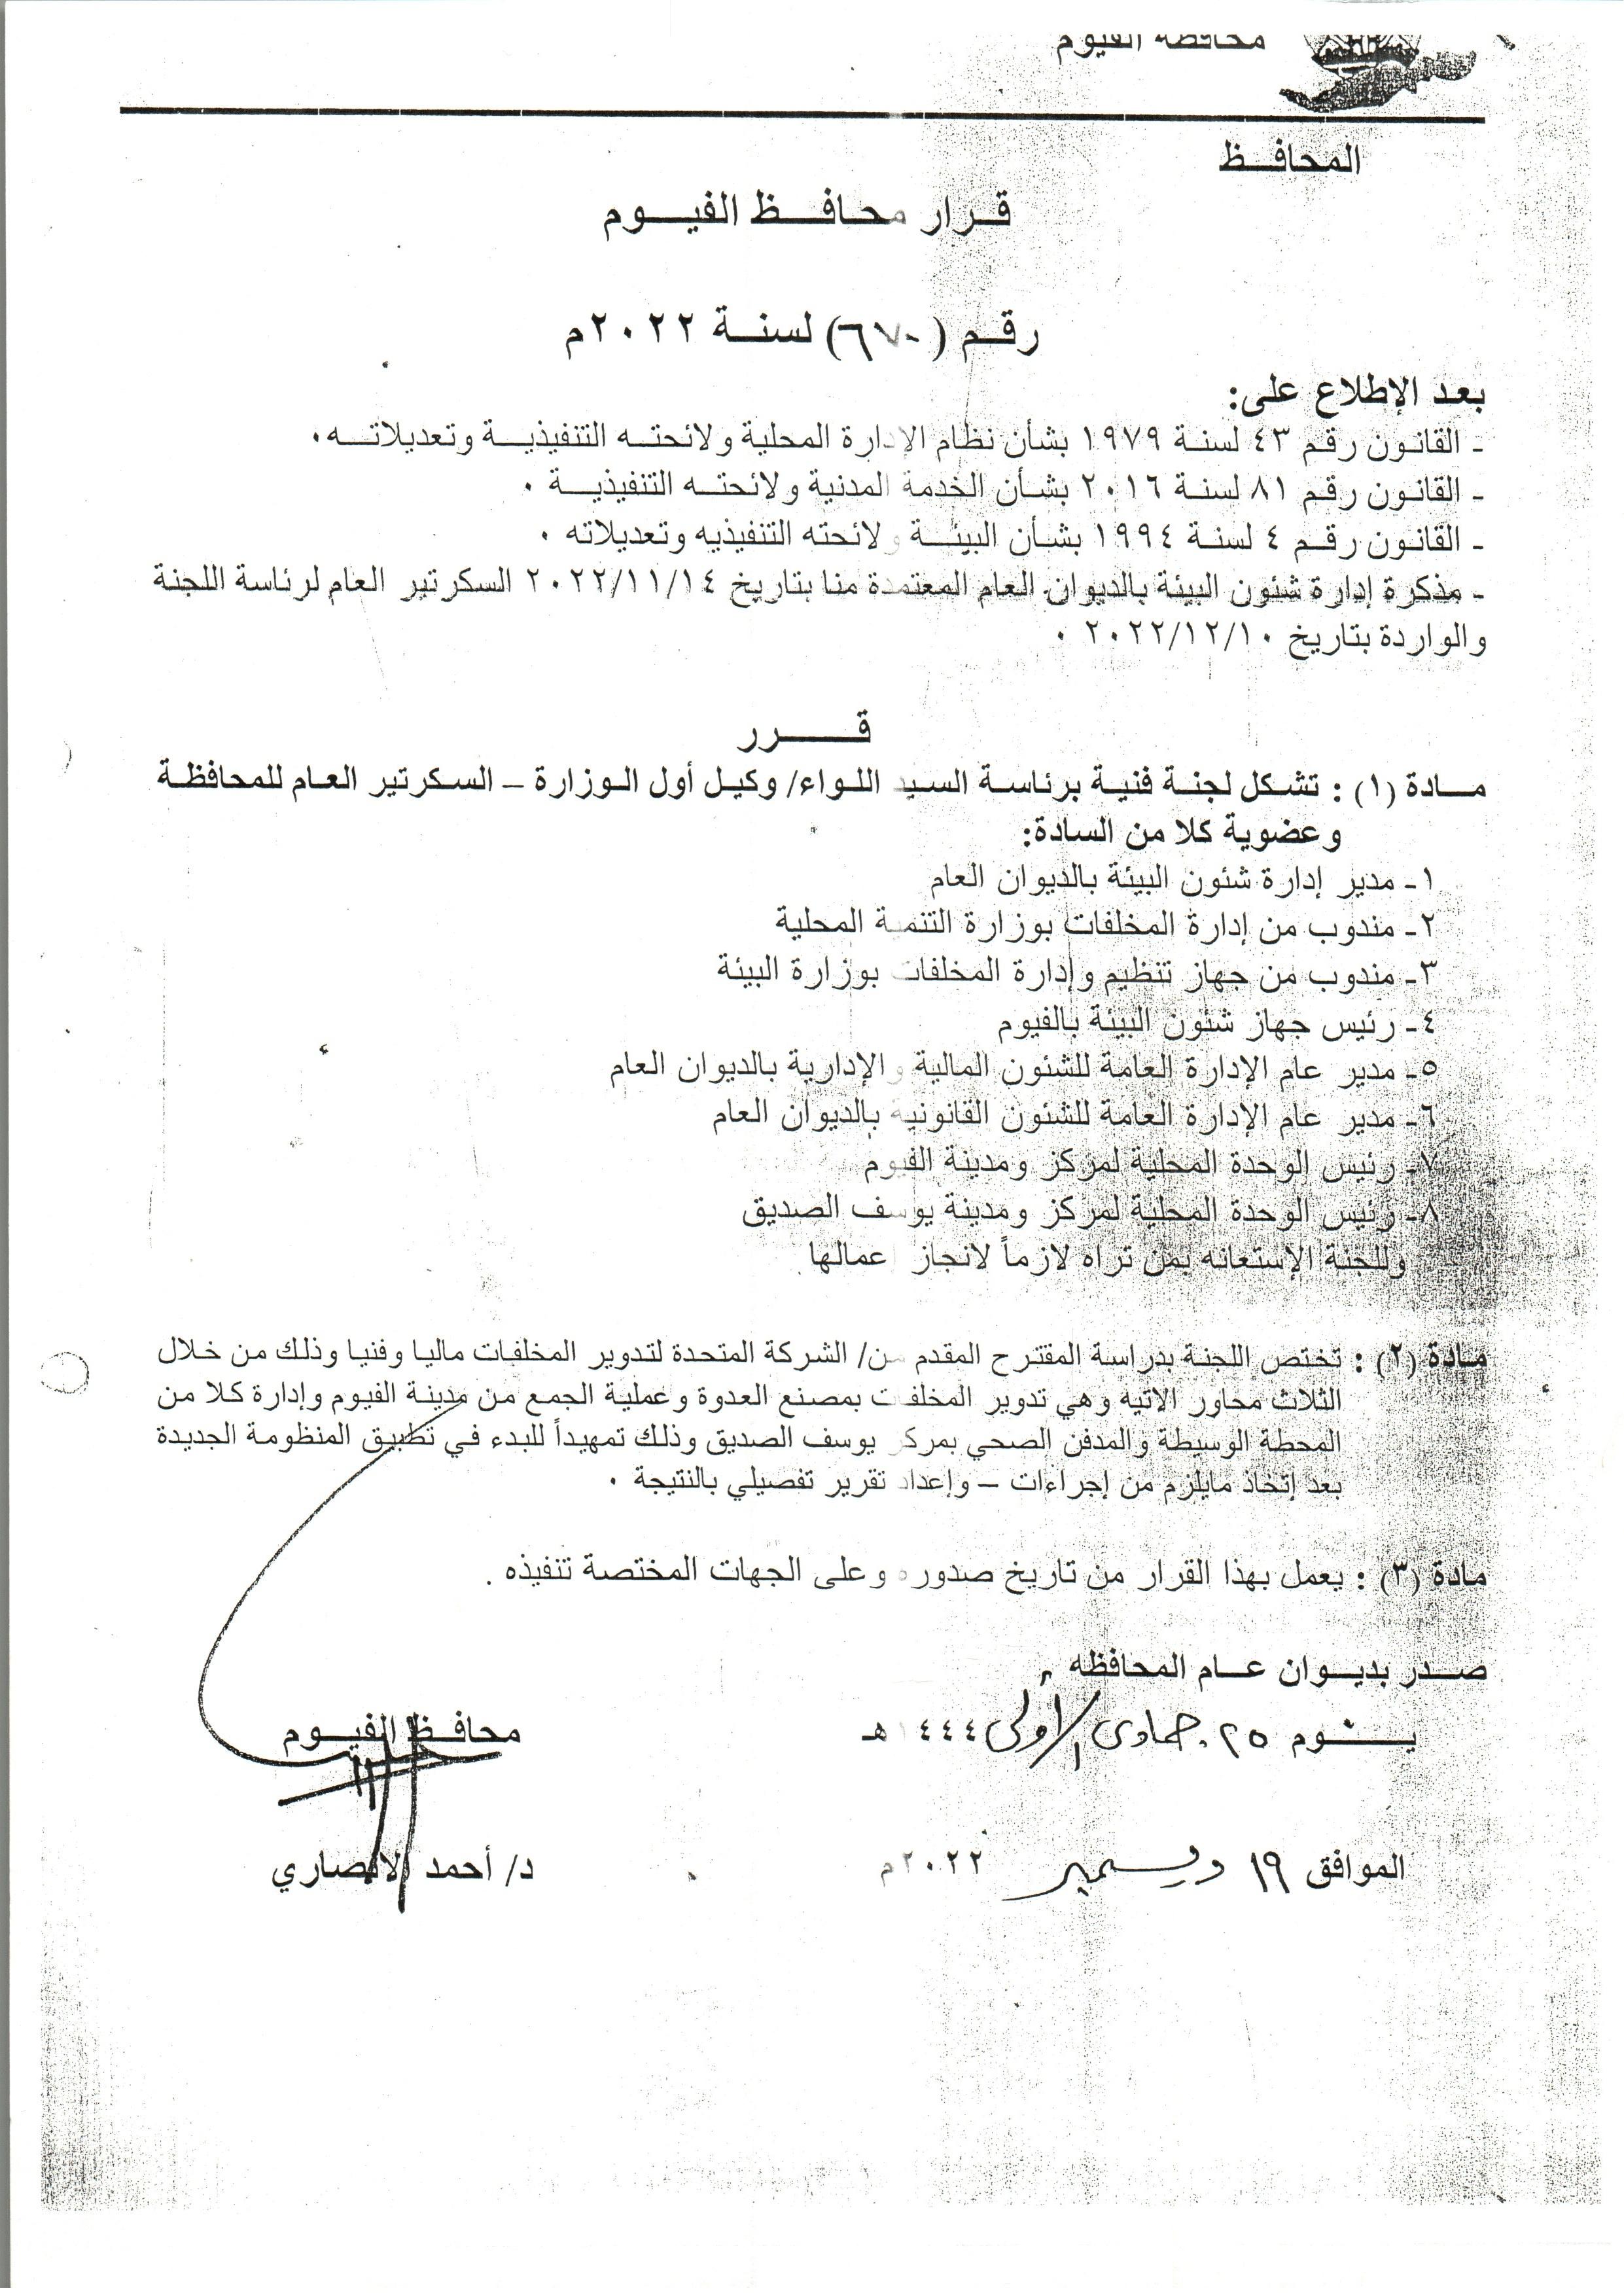 محافظة الفيوم
المحافــظ
قــرار محافــظ الفيــوم
رقـم (٦٧٠) لسنـة ٢٠٢٢م
بعـد الإطلاع على:
- القانون رقـم ٤٣ لسنة ١٩٧٩ بشأن نظام الإدارة المحلية ولائحتـه التنفيذيـة وتعديلاتـه.
- القانون رقـم ٨١ لسنة ٢٠١٦ بشـأن الخدمة المدنية ولائحتـه التنفيذيـة .
- القانون رقـم ٤ لسنة ١٩٩٤ بشـأن البيئـة ولائحته التنفيذيه وتعديلاته .
- مذكرة إدارة شئون البيئة بالديوان العام المعتمدة منا بتاريخ ٢٠٢٢/١١/١٤ السكرتير العام لرئاسة اللجنة
والواردة بتاريخ ٢٠٢٢/١٢/١٠ .
قـــــرر
مــادة (١) : تشـكل لجنة فنيـة برئاسـة السـيد اللـواء/ وكيـل أول الـوزارة – السـكرتير العـام للمحافظـة
وعضوية كلا من السادة:
١- مدير إدارة شئون البيئة بالديوان العام
٢- مندوب من إدارة المخلفات بوزارة التنمية المحلية
٣- مندوب من جهاز تنظيم وإدارة المخلفات بوزارة البيئة
٤- رئيس جهاز شئون البيئة بالفيوم
٥- مدير عام الإدارة العامة للشئون المالية والإدارية بالديوان العام
٦- مدير عام الإدارة العامة للشئون القانونية بالديوان العام
٧- رئيس الوحدة المحلية لمركز ومدينة الفيوم
٨- رئيس الوحدة المحلية لمركز ومدينة يوسف الصديق
وللجنة الإستعانه بمن تراه لازماً لانجاز عمالها
مـادة (٢) : تختص اللجنة بدراسة المقترح المقدم من/ الشركة المتحدة لتدوير المخلفات ماليا وفنيا وذلك من خلال
الثلاث محاور الاتيه وهي تدوير المخلفات بمصنع العدوة وعملية الجمع من مدينة الفيوم وإدارة كلا من
المحطة الوسيطة والمدفن الصحي بمركز يوسف الصديق وذلك تمهيداً للبدء في تطبيق المنظومة الجديدة
بعد إتخاذ مايلزم من إجراءات – وإعداد تقرير تفصيلي بالنتيجة .
مادة (٣) : يعمل بهذا القرار من تاريخ صدوره وعلى الجهات المختصة تنفيذه .
صــدر بديــوان عــام المحافظه
يــــوم ٢٥ جمادى الأولى ١٤٤٤هـ
محافـظ الفيـوم
الموافق ١٩ ديسمبر ٢٠٢٢م
د/ أحمد الانصاري